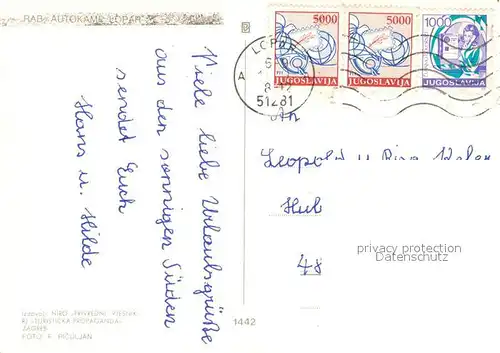 RAB, AUTOKAMP LOPAR
Viele liebe Urlaubsgrüße
aus den sonnigen Süden
sendet Euch
Hans u. Hilde
5000
JUGOSLAVIJA
5000
JUGOSLAVIJA
1000
JUGOSLAVIJA
LOPAR
A
51281
An
Leopold u
Hub
48
privacy protection
Datenschutz
Izdavač: NIRO »PRIVREDNI VJESNIK«
»TURISTIČKA PROPAGANDA«
ZAGREB
FOTO: R. PIČULJAN
1442